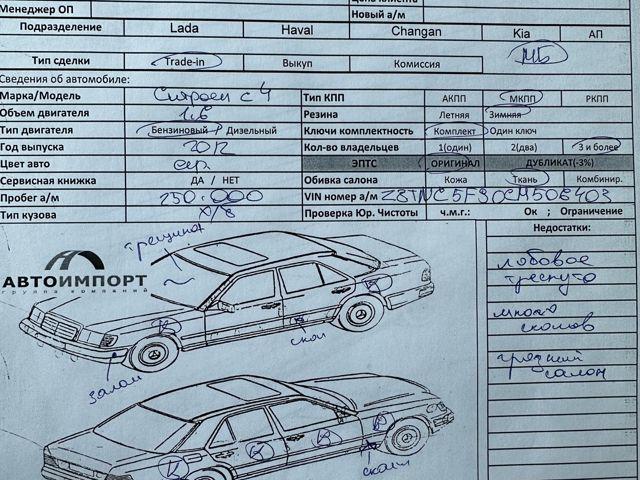 Менеджер ОП
Цена клиента
Новый а/м
Подразделение Lada Haval Changan Kia АП
Тип сделки Trade-in Выкуп Комиссия МБ
Сведения об автомобиле:
Марка/Модель Ситроен с 4 Тип КПП АКПП МКПП РКПП
Объем двигателя 1.6 Резина Летняя Зимняя
Тип двигателя Бензиновый Дизельный Ключи комплектность Комплект Один ключ
Год выпуска 2012 Кол-во владельцев 1(один) 2(два) 3 и более
Цвет авто сер. ЭПТС ОРИГИНАЛ ДУБЛИКАТ(-3%)
Сервисная книжка ДА / НЕТ Обивка салона Кожа Ткань Комбинир.
Пробег а/м 250.000 VIN номер а/м
Тип кузова Х/Б Проверка Юр. Чистоты ч.м.г.: Ок ; Ограничение
Недостатки:
трещина
лобовое
треснуто
АВТОИМПОРТ
группа компаний
много
сколов
скол
грязный
салон
залом
скол